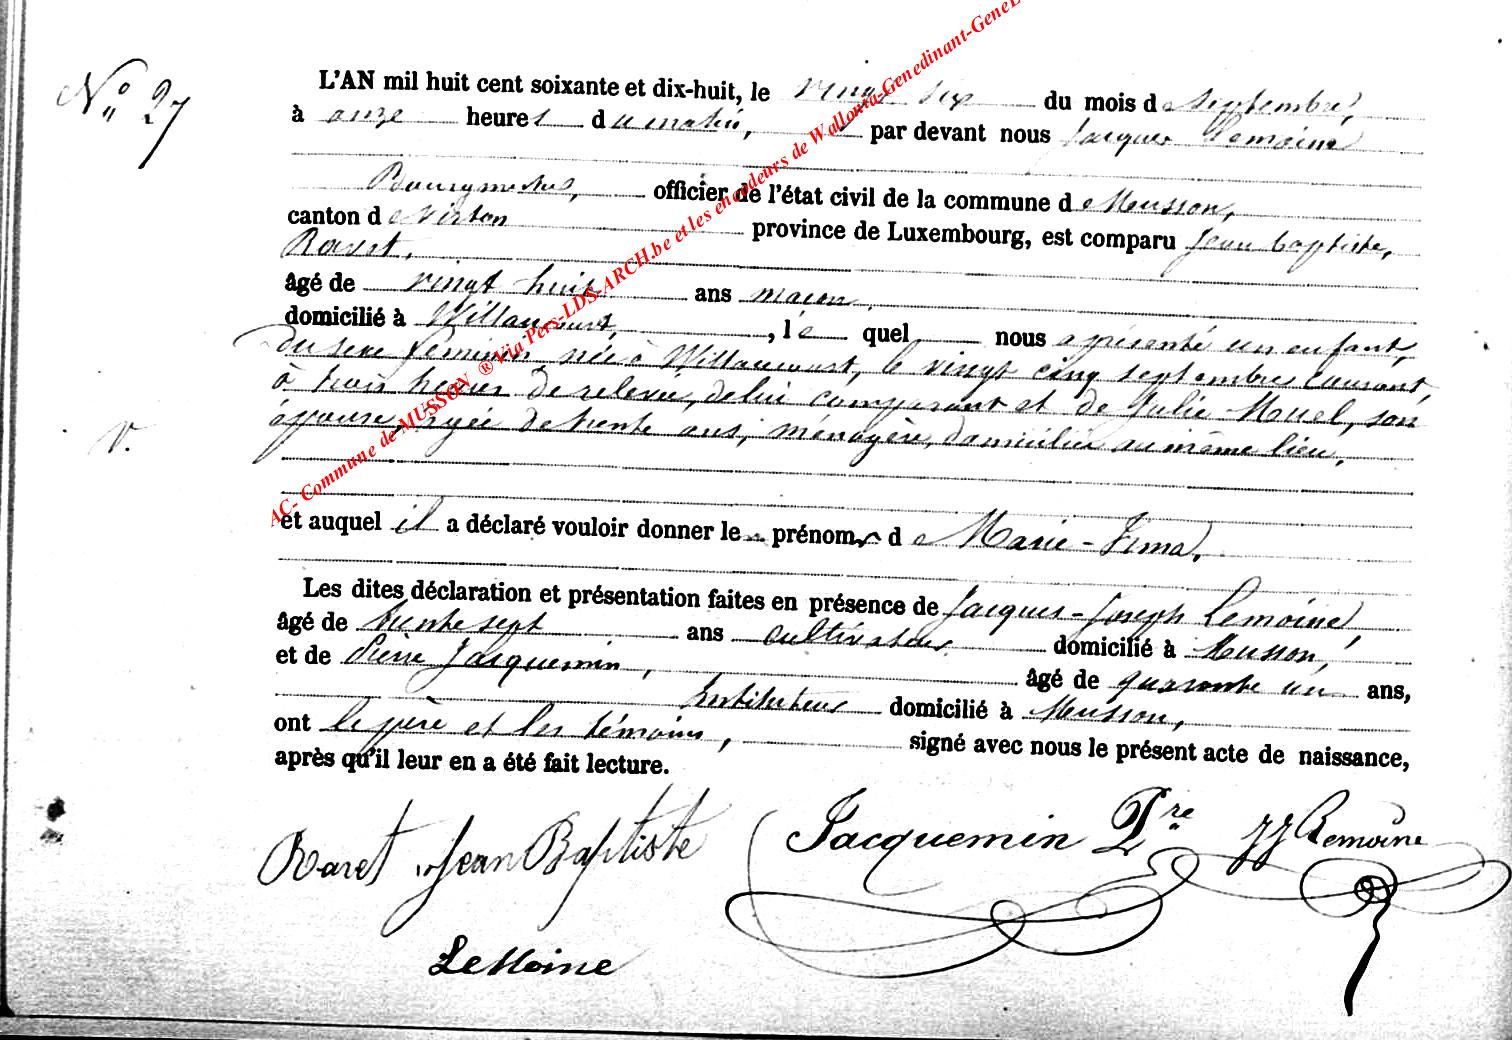 N° 27
L'AN mil huit cent soixante et dix-huit, le vingt six du mois de septembre,
à onze heures du matin, par devant nous Jacques Lemoine
Bourgmestre, officier de l'état civil de la commune de Musson,
canton de Virton province de Luxembourg, est comparu Jean baptiste,
Raret,
âgé de vingt huit ans maçon,
domicilié à Willancourt, le quel nous a présenté un enfant,
du sexe féminin née à Willancourt, le vingt cinq septembre courant,
à trois heures de relevée, de lui comparant et de Julie Muel, son
épouse, agée de trente ans, ménagère, domiciliée au même lieu,
V.
et auquel il a déclaré vouloir donner le prénoms de Marie-Irma,
Les dites déclaration et présentation faites en présence de Jacques-Joseph Lemoine,
âgé de trente sept ans cultivateur domicilié à Musson,
et de Pierre Jacquemin, âgé de quarante un ans,
Instituteur domicilié à Musson,
ont le père et les témoins, signé avec nous le présent acte de naissance,
après qu'il leur en a été fait lecture.
Raret Jean Baptiste Jacquemin Pre JJ Lemoine
LeMoine
AC- Commune de MUSSON ® Via Pers-LDS-ARCH.be et les encodeurs de Wallonia-Genedinant-GeneL